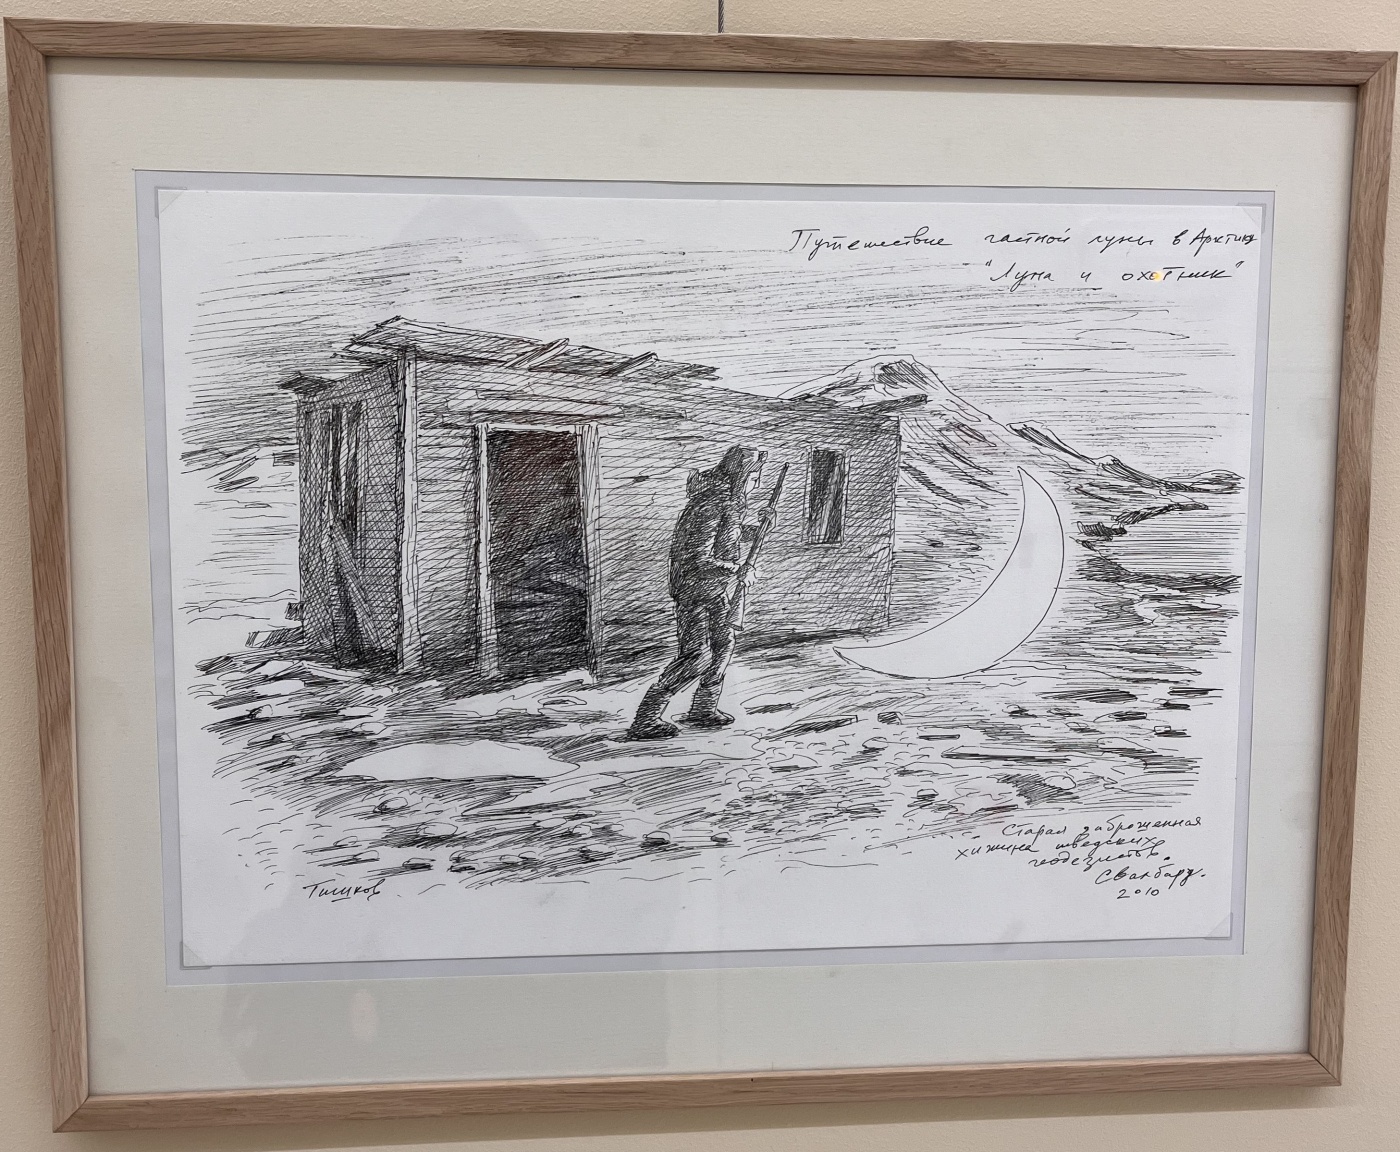 Путешествие частной луны в Арктику
"Луна и охотник"
Старая заброшенная
хижина шведских
геодезистов.
Сванбард.
2010
Тишков